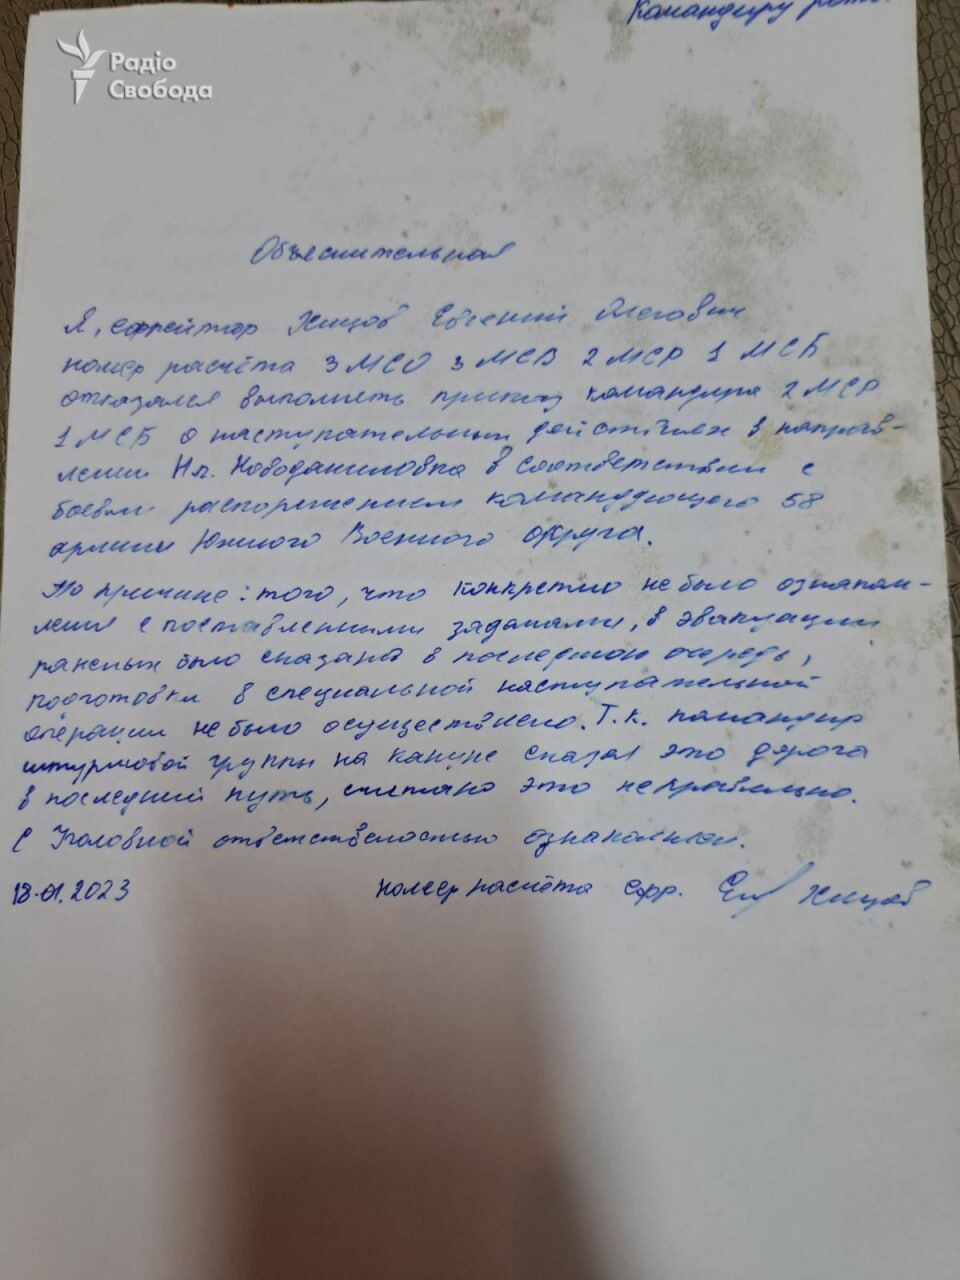 Командиру роты
Радіо
Свобода
Объеснительная
Я, ефрейтор Хищов Евгений Олегович
номер расчёта 3 МСО 3 МСВ 2 МСР 1 МСБ
отказался выполнять приказ командира 2 МСР
1 МСБ о наступательных действиях в направ-
лении Нп. Новоданиловка в соответствии с
боевым распоряжением командующего 58
армии Южного Военного округа.
По причине: того, что конкретно не было ознаком-
ления с поставленными задачами, в эвакуации
раненых было сказано в последнюю очередь,
подготовки в специальной наступательной
операции не было осуществлено. Т.к. командир
штурмовой группы на кануне сказал это дорога
в последний путь, считаю это неправильно.
С Уголовной ответственостью ознакомлен.
18.01.2023 номер расчёта ефр. Хищов